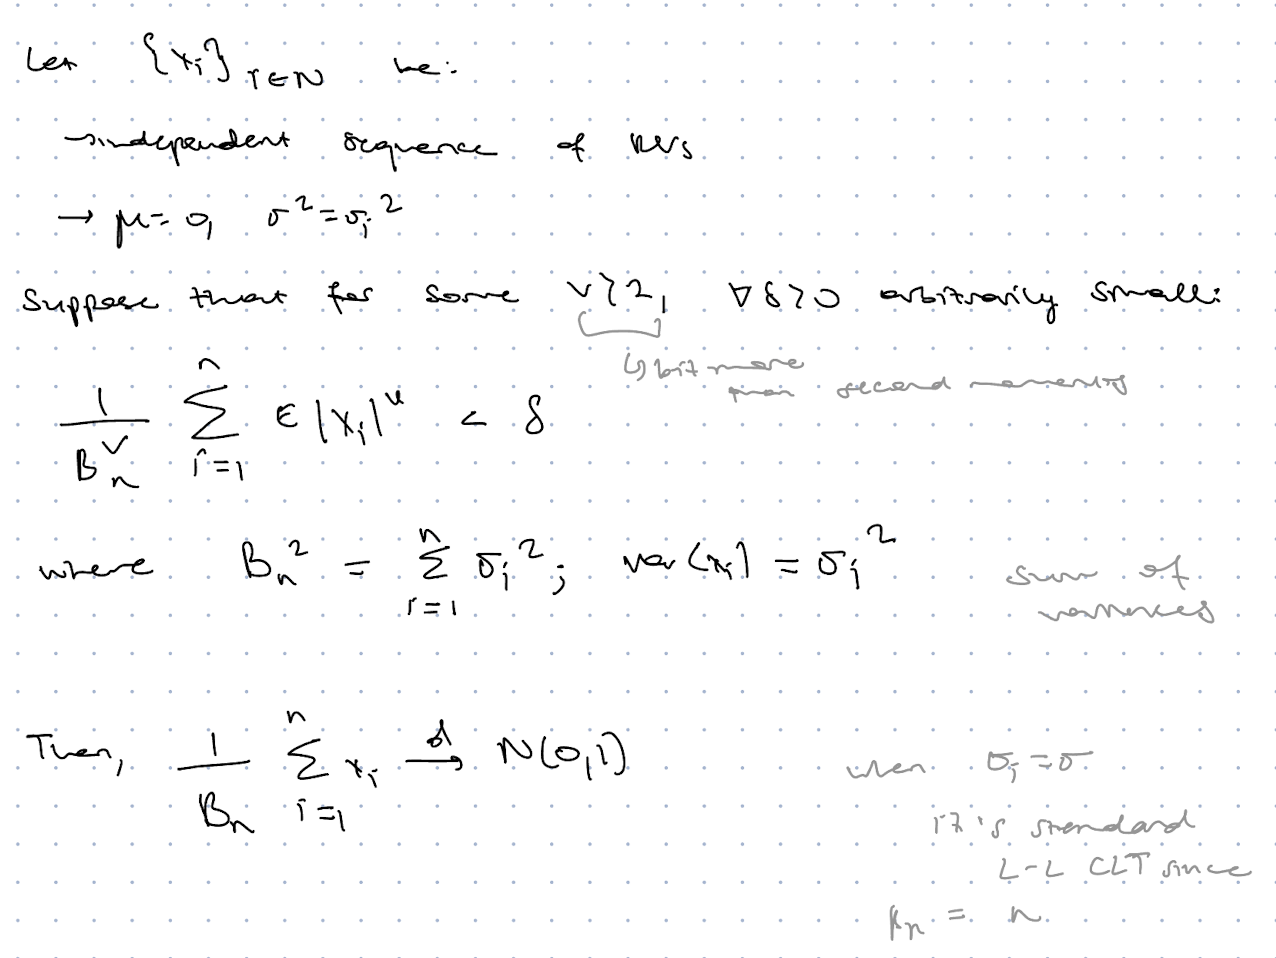 Let {X_i}_{i∈N} be:
→ independent sequence of RVs
→ μ=0, σ²=σ_i²
Suppose that for some ν>2, ∀δ>0 arbitrarily small:
↳ bit more
than second moments
1/B_n^ν Σ_{i=1}^n E|X_i|^ν < δ
where B_n² = Σ_{i=1}^n σ_i²; var(X_i) = σ_i²
sum of
variances
Then, 1/B_n Σ_{i=1}^n X_i →^d N(0,1)
when σ_i=σ
it's standard
L-L CLT since
B_n = n